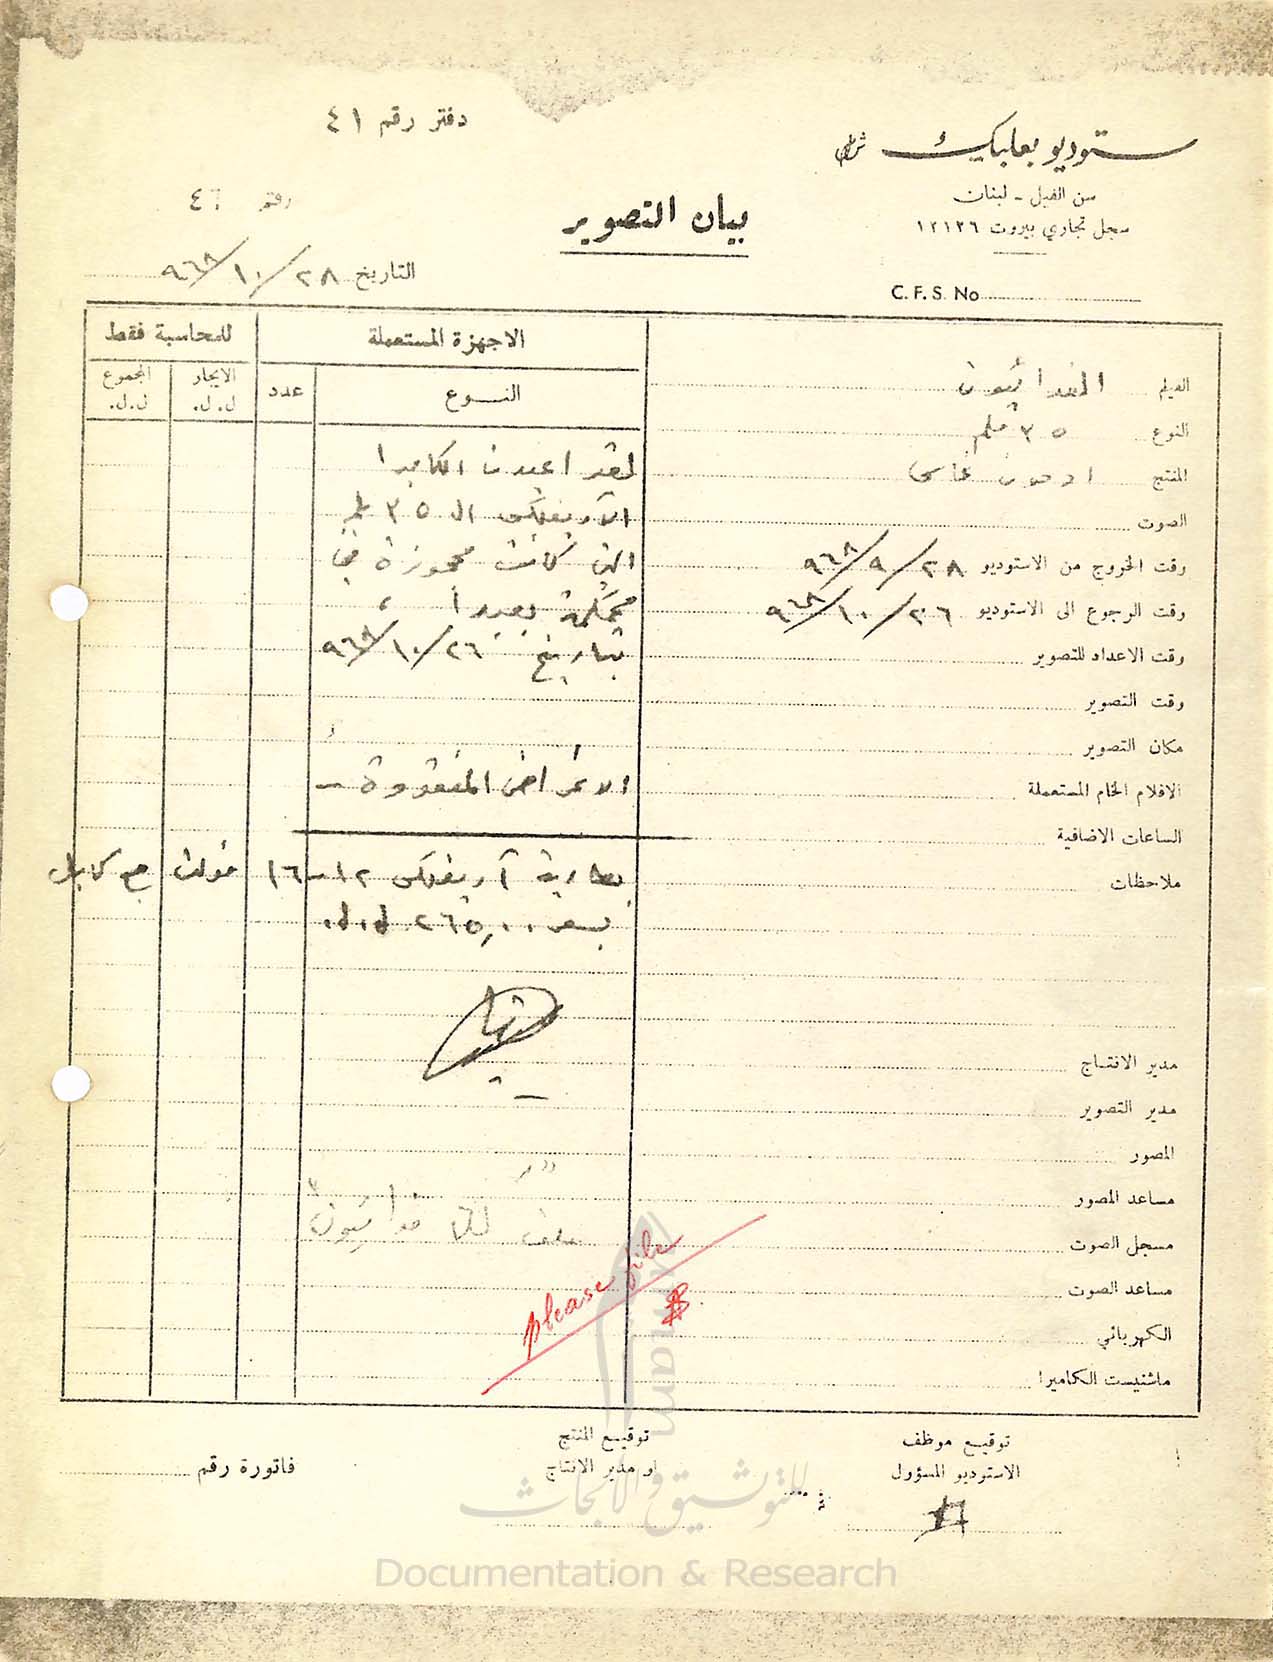 دفتر رقم ٤١
ستوديو بعلبك ش.م.ل
سن الفيل - لبنان
سجل تجاري بيروت ١٢١٢٦
رقم ٤٦
بيان التصوير
التاريخ ٢٨/١٠/٩٦٨
C. F. S. No
الفيلم الفدائيون
النوع ٣٥ ملم
المنتج
الصوت
وقت الخروج من الاستوديو ٢٨/٩/٩٦٨
وقت الرجوع الى الاستوديو ٢٦/١٠/٩٦٨
وقت الاعداد للتصوير
وقت التصوير
مكان التصوير
الافلام الخام المستعملة
الساعات الاضافية
ملاحظات
مدير الانتاج
مدير التصوير
المصور
مساعد المصور
مسجل الصوت
مساعد الصوت
الكهربائي
ماشنيست الكاميرا
الاجهزة المستعملة
للمحاسبة فقط
النوع
عدد
الايجار ل.ل.
المجموع ل.ل.
لقد اعيدت الكاميرا
الآريفلكس الـ ٣٥ ملم
التي كانت محجوزة في
محكمة بعبدا ،
بتاريخ ٢٦/١٠/٩٦٨
الاغراض المفقودة -
بطارية آريفلكس ١٢-١٦ فولت مع كابل
بسعر ٢٦٥,٠٠ ل.ل.
ملف كلنا فدائيون"
please file
توقيع موظف
الاستوديو المسؤول
توقيع المنتج
او مدير الانتاج
فاتورة رقم
Umam
للتوثيق والأبحاث
Documentation & Research